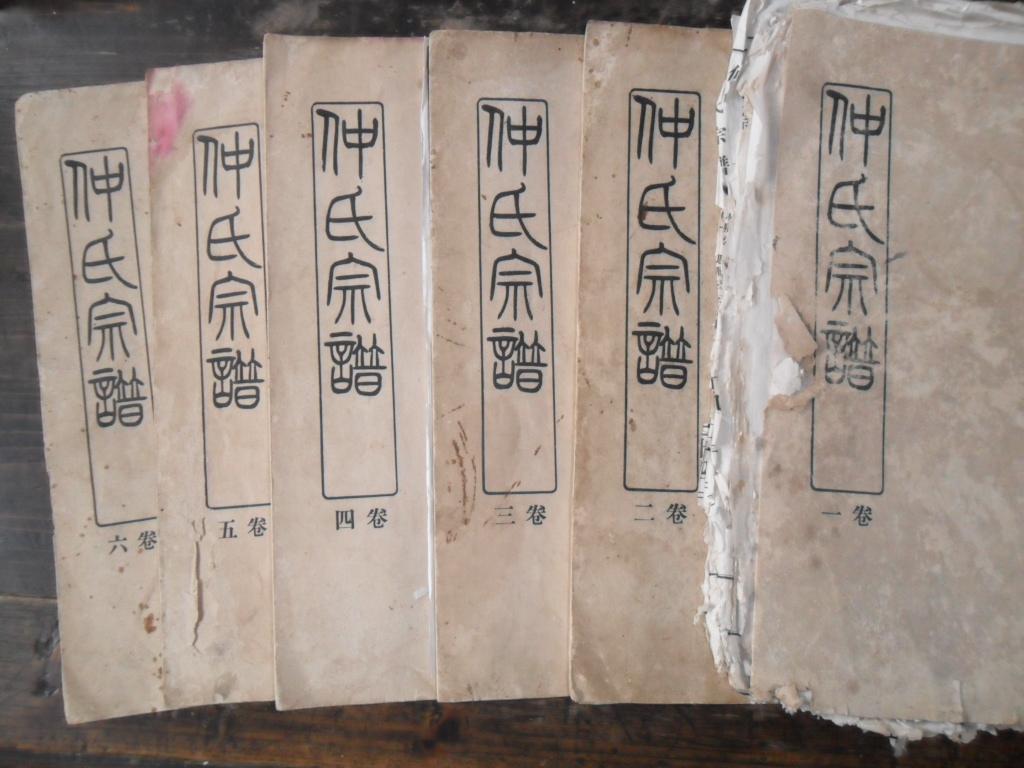 仲氏宗譜
卷一
仲氏宗譜
卷二
仲氏宗譜
卷三
仲氏宗譜
卷四
仲氏宗譜
卷五
仲氏宗譜
卷六